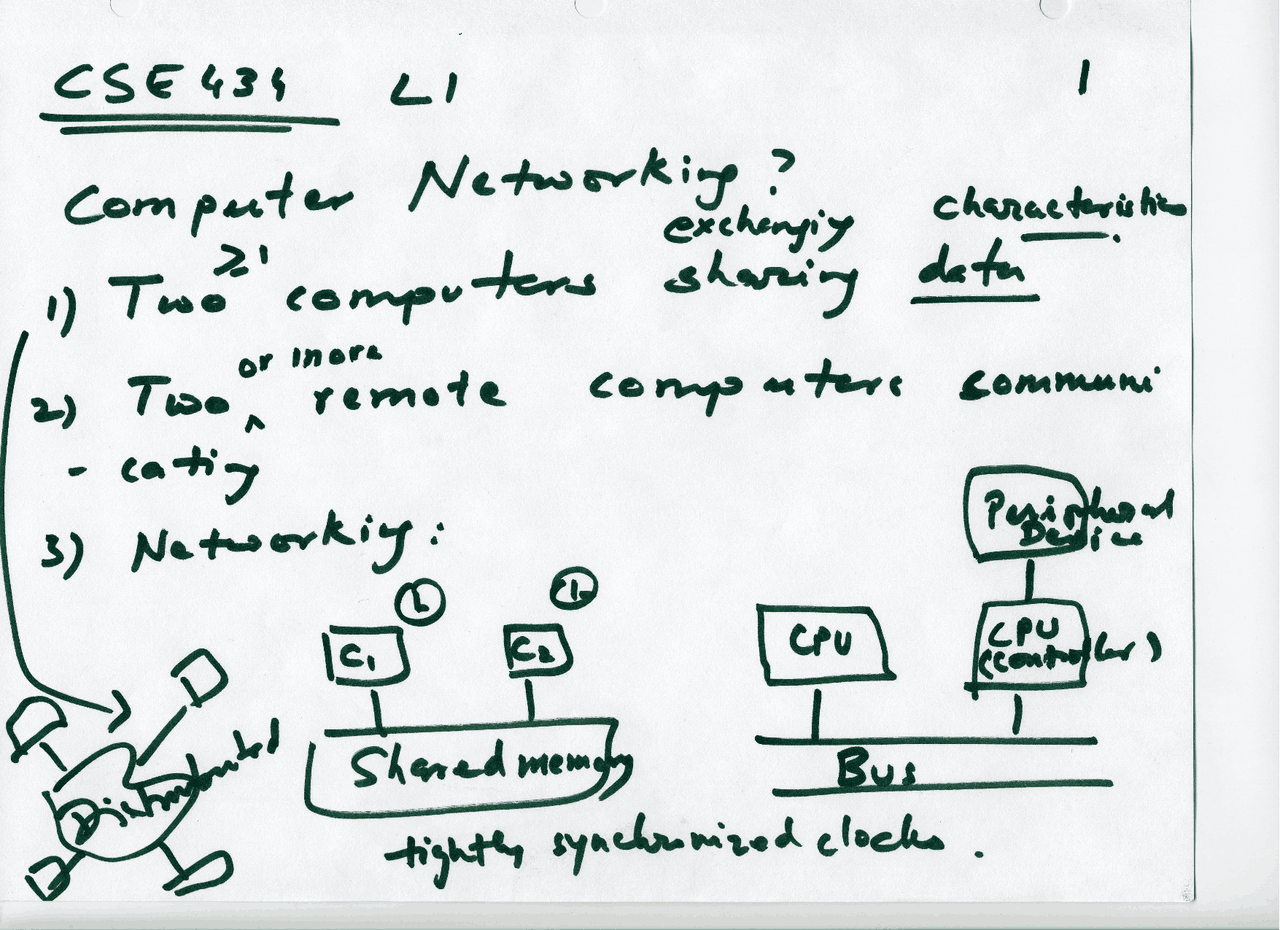 CSE 434 L1 1
Computer Networking?
exchanging characteristics
≥1
1) Two computers sharing data
or more
2) Two ^ remote computers communi
- cating
3) Networking:
Peripheral
Device
C1 C2 CPU CPU
(Controller)
Shared memory Bus
Distributed
tightly synchronized clocks.